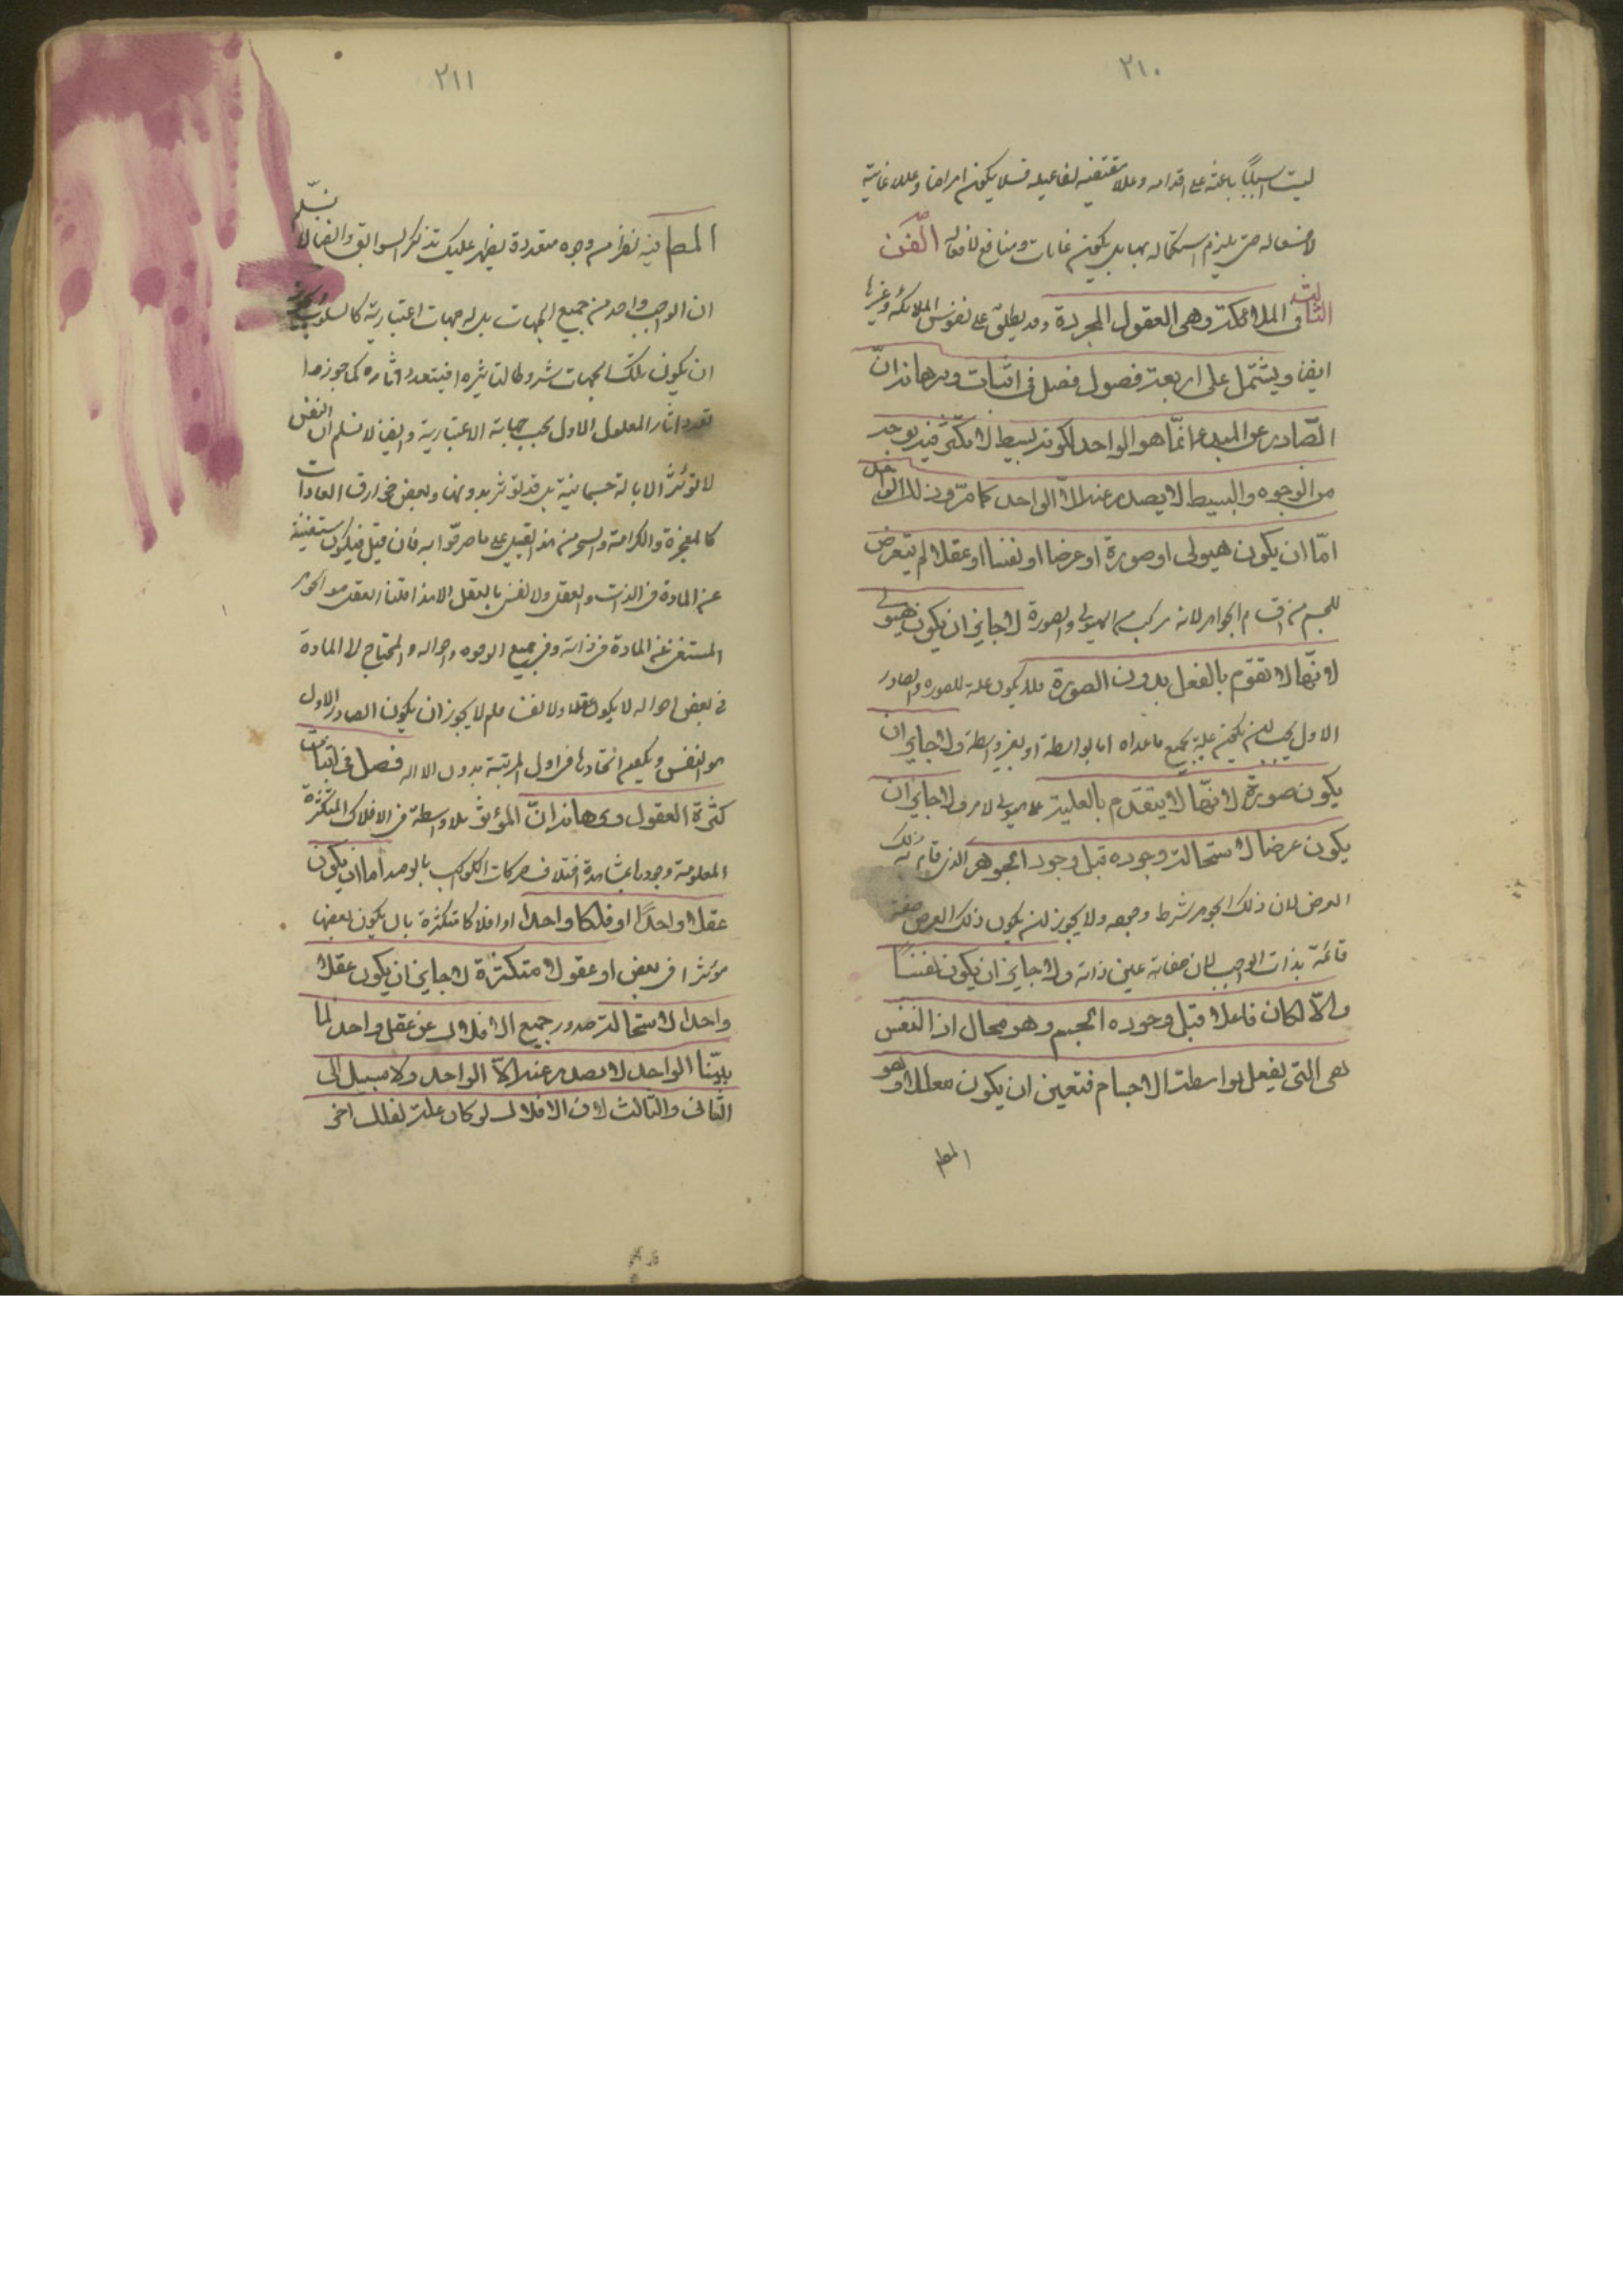 ٢١٠
ليست اسبابا باعثة على اقدامه وعللا مقتضية لفاعليته فلا يكون اغراضا وعللا غائية
لافعاله حتى يلزم استكماله بها بل يكون غايات ومنافع لافعاله الفن
الثالث فى الملائكة وهى العقول المجردة وقد يطلق على نفوس الملائكة وغيرها
ايضا ويشتمل على اربعة فصول فصل فى اثبات وبرهانه ان
الصّادر عن المبدء انّما هو الواحد لكونه بسيطا لا تكثّر فيه بوجه
من الوجوه والبسيط لا يصدر عنه الّا الواحد كما مرّ وذلك الواحد
امّا ان يكون هيولى او صورة او عرضا او نفسا او عقلا لم يتعرض
للجسم من اقسام الجواهر لانه مركب من الهيولى والصورة لا جايز ان يكون هيولى
لانّها لا تقوّم بالفعل بدون الصورة فلا يكون علة للصورة والصادر
الاول يجب ان يكون علة لجميع ما عداه اما بواسطة او بغير واسطة ولا جايز ان
يكون صورة لانّها لا يتقدم بالعلية على الهيولى لا مر ولا جايز ان
يكون عرضا لاستحالة وجوده قبل وجود الجوهر الذى قام به ذلك
العرض لان ذلك الجوهر شرط وجوده ولا يجوز ان يكون ذلك العرض صفة
قائمة بذات الواجب لان صفاته عين ذاته ولا جايز ان يكون نفسًا
والّا لكان فاعلا قبل وجوده الجسم وهو محال اذ النفس
هى التى يفعل بواسطة الاجسام فتعين ان يكون عقلا وهو
المط
٢١١
المط فيه نظر من وجوه متعددة يظهر عليك بتذكر السوابق وايضا لا نسلّم
ان الواجب واحد من جميع الجهات بل له جهات اعتبارية كالسلوب
ان يكون تلك الجهات شروطا لتاثيره فيتعدد اثاره كما جوزوا
تعدد اثار المعلول الاول بحسب جهاته الاعتبارية وايضا لا نسلم ان النفس
لا تؤثر الا بالة جسمانية بل قد تؤثر بدونها وبعض خوارق العادات
كالمعجزة والكرامة والسحر من هذا القبيل على ما صرحوا به فان قيل فيكون مستغنية
عن المادة فى الذات والفعل ولا نعنى بالعقل الا هذا قلنا العقل هو الجوهر
المستغنى عن المادة فى ذاته وفى جميع الوجوه واحواله والمحتاج الى المادة
فى بعض احواله لا يكون عقلا ولا نفسا فلم لا يجوز ان يكون الصادر الاول
هو النفس ويكون اتحادها فى اول المرتبة بدون الالة فصل فى اثبات
كثرة العقول وبرهانه انّ المؤثر بلا واسطة فى الافلاك المتكثرة
المعلومة وجودها بمشاهدة اختلاف حركات الكواكب بالرصد اما ان يكون
عقلا واحدًا او فلكا واحدا او افلاكا متكثرة بان يكون بعضها
مؤثرا فى بعض او عقولا متكثّرة لا جايز ان يكون عقلا
واحدا لاستحالة صدور جميع الافلاك عن عقل واحد لما
بيّنا الواحد لا يصدر عنه الّا الواحد ولا سبيل الى
الثانى والثالث لان الافلاك لو كان علة لفلك اخر